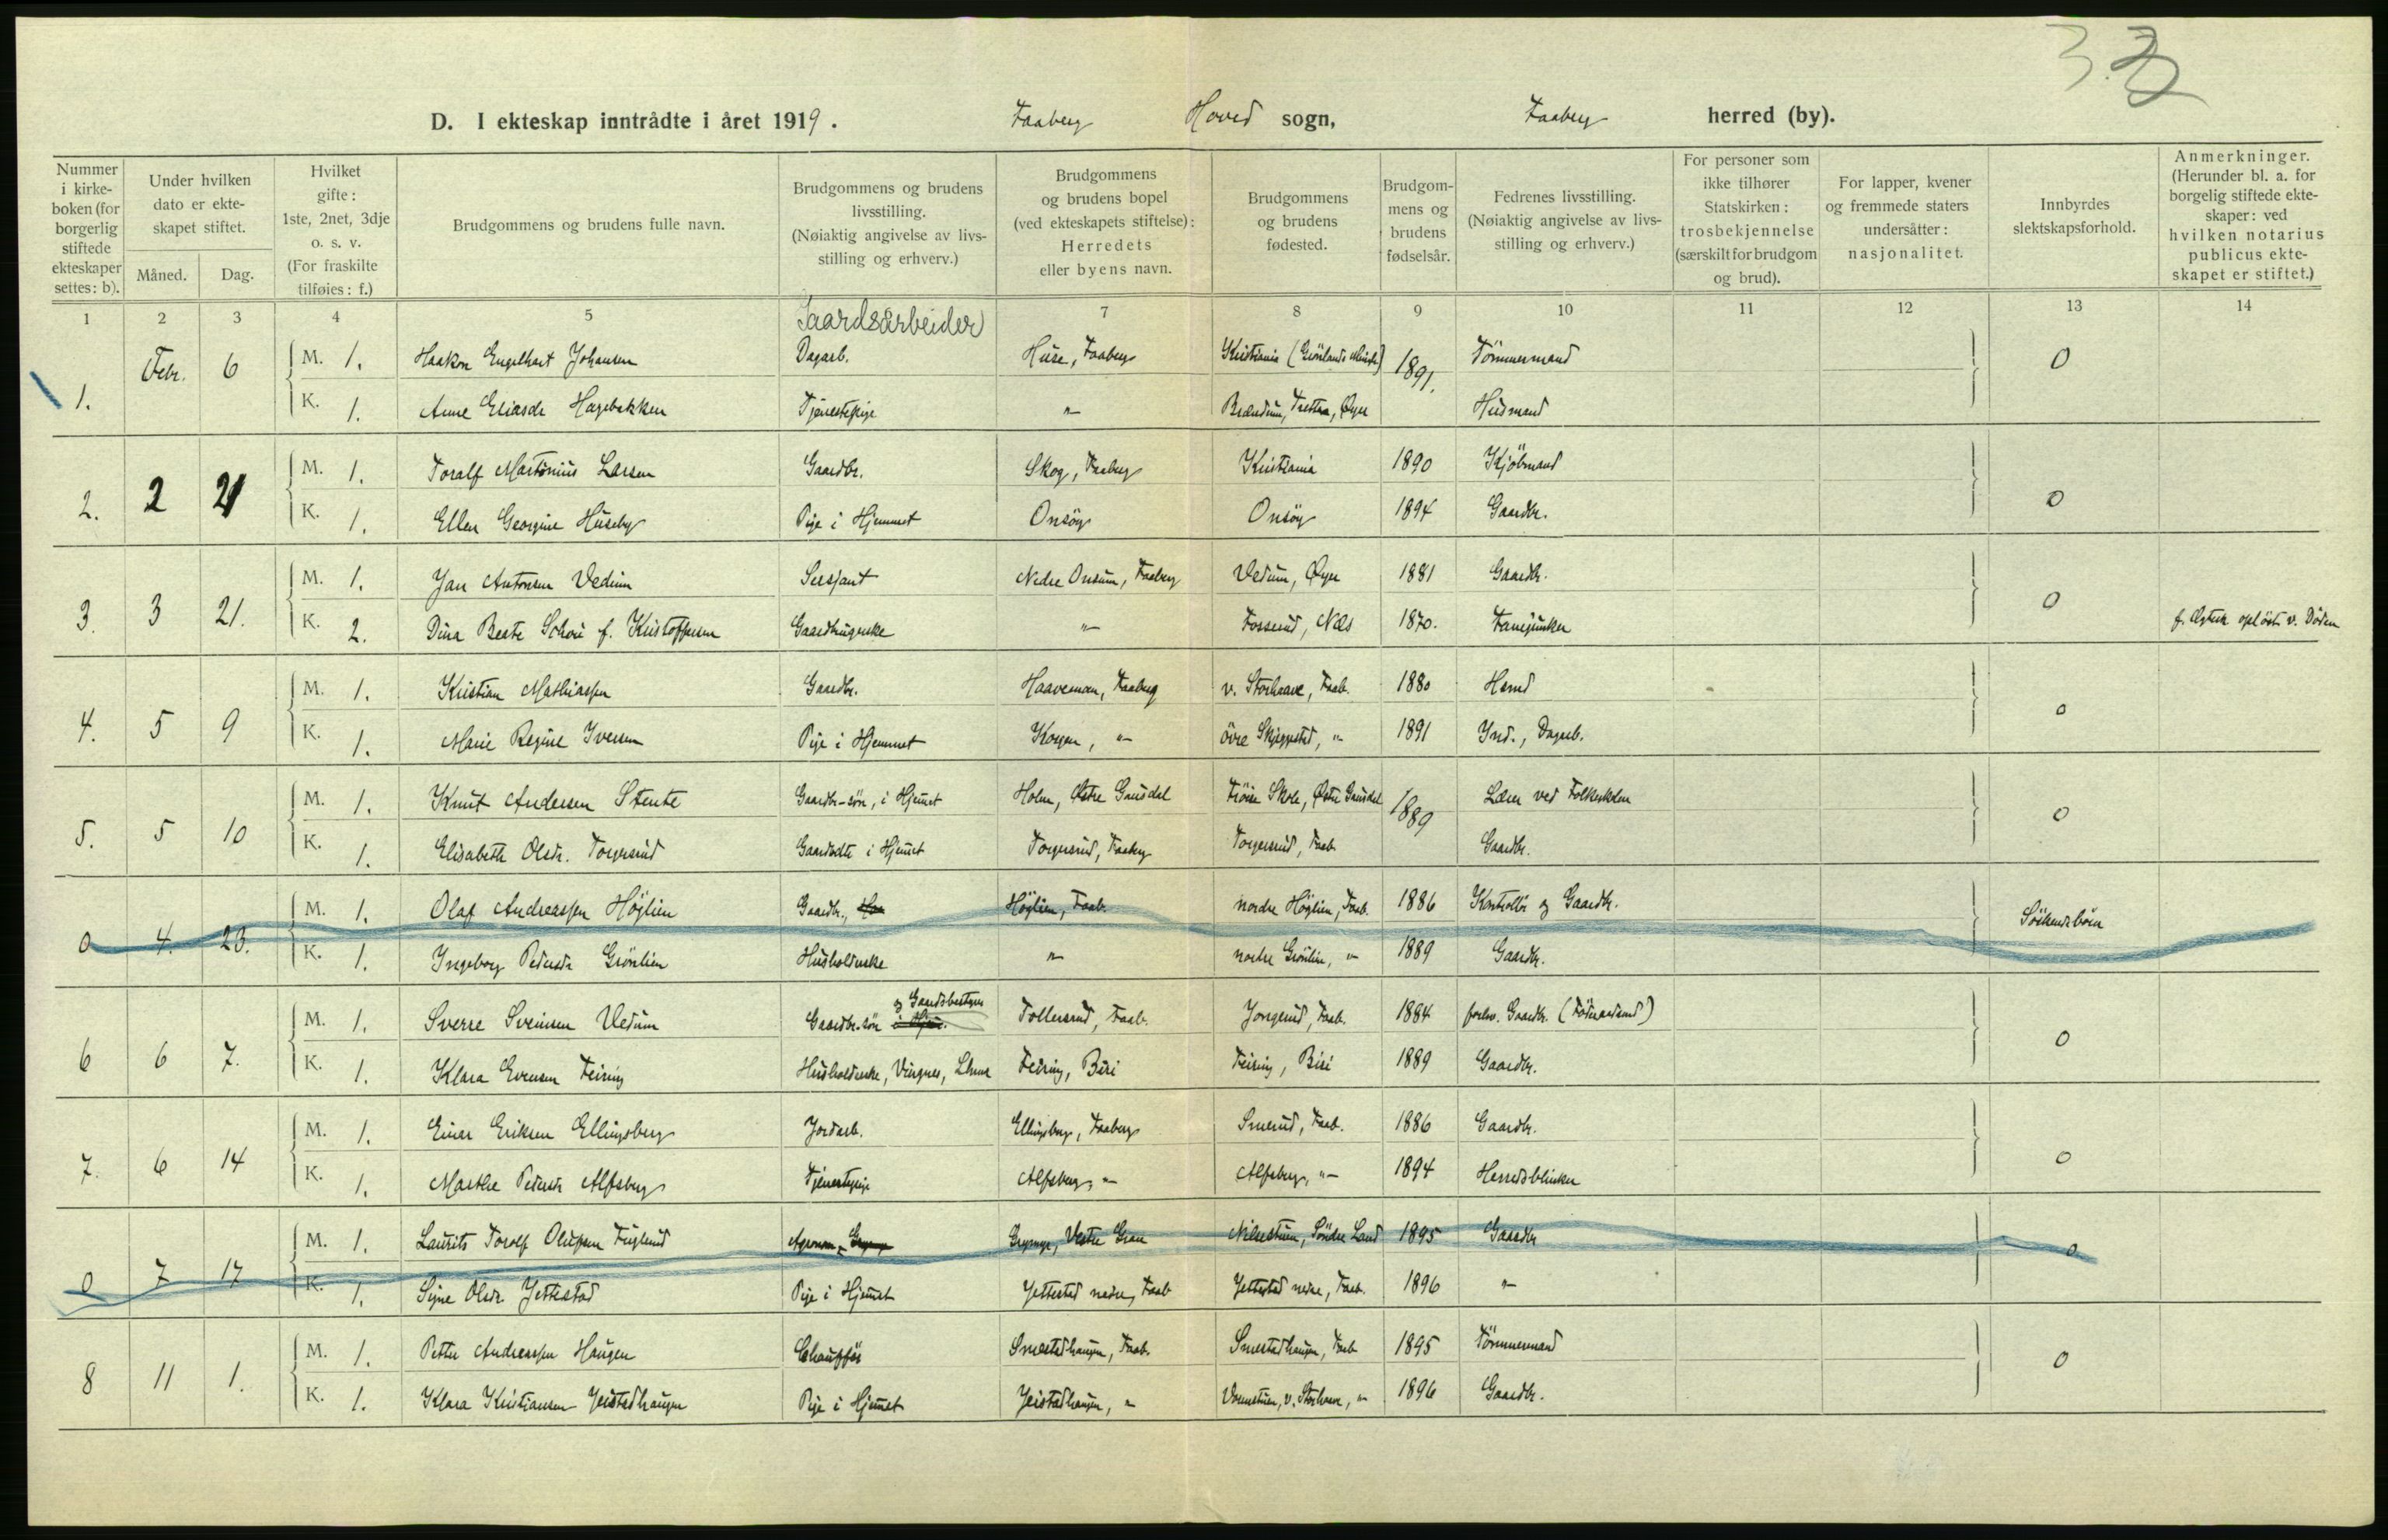 3.
D. I ekteskap inntrådte i året 1919. Faaberg Hoved sogn, Faaberg herred (by).
Nummer i kirkeboken (for borgerlig stiftede ekteskaper settes: b).
Under hvilken dato er ekteskapet stiftet.
Måned.
Dag.
Hvilket gifte: 1ste, 2net, 3dje o. s. v. (For fraskilte tilføies: f.)
Brudgommens og brudens fulle navn.
Brudgommens og brudens livsstilling. (Nøiaktig angivelse av livsstilling og erhverv.)
Brudgommens og brudens bopel (ved ekteskapets stiftelse): Herredets eller byens navn.
Brudgommens og brudens fødested.
Brudgommens og brudens fødselsår.
Fedrenes livsstilling. (Nøiaktig angivelse av livsstilling og erhverv.)
For personer som ikke tilhører Statskirken: trosbekjennelse (særskilt for brudgom og brud).
For lapper, kvener og fremmede staters undersåtter: nasjonalitet.
Innbyrdes slektskapsforhold.
Anmerkninger. (Herunder bl. a. for borgelig stiftede ekteskaper: ved hvilken notarius publicus ekteskapet er stiftet.)
1 2 3 4 5 7 8 9 10 11 12 13 14
Gaardsarbeider
1. Febr. 6 M. 1. Haakon Engelhart Johansen Dagarb. Huse, Faaberg Kristiania (Grönlands 1891. Tömmermand 0
K. 1. Anne Eliasdr Hagebakken Tjenestepige " Brændum, Tretten, Öyer Husmand
2. 2 21 M. 1. Toralf Martinius Larsen Gaardbr. Skog, Faaberg Kristiania 1890 Kjöbmand 0
K. 1. Ellen Georgine Huseby Pige i Hjemmet Onsöy Onsöy 1894 Gaardbr.
3. 3 21. M. 1. Jan Antonsen Vedum Sersjant Nedre Onsum, Faaberg Vedum, Öyer 1881 Gaardbr. 0
K. 2. Dina Beate Schou f. Kristoffersen Gaardbrugerske " Fosserud, Næs 1870. Fanejunker f. Ægtesk. oplöst v. Döden
4. 5 9 M. 1. Kristian Mathiassen Gaardbr. Haavemoen, Faaberg v. Storhaave, Faab. 1880 Husmd 0
K. 1. Marie Regine Iversen Pige i Hjemmet Korgen, " övre Skjeggestad, " 1891 Ind., Dagarb.
5. 5 10 M. 1. Knut Andersen Stente Gaardbr-sön, i Hjemmet Holen, Östre Gausdal Skole, Östre Gausdal 1889 Lærer ved Folkeskolen 0
K. 1. Elisabeth Olsdr. Torgersrud Gaardbdtr i Hjemmet Torgersrud, Faaberg Torgersrud, Faab Gaardbr.
0 4. 23. M. 1. Olaf Andreassen Höjlien Gaardbr. Höjlien, Faab. nordre Höjlien, Faab. 1886 Kontrollör og Gaardbr. Söskendebörn
K. 1. Ingeborg Pedersdr Grönlien Husholderske " nordre Grönlien, " 1889 Gaardbr.
6 6 7. M. 1. Sverre Sveinsen Vedum Gaardbr-sön og Gaardsbestyrer Tollersrud, Faab. Jorgerud, Faab. 1884 forhv. Gaardbr. (Föderaadsmd) 0
K. 1. Klara Evensen Feiring Husholderske, Vingnes, Lhmr Feiring, Biri Feiring, Biri 1889 Gaardbr.
7. 6 14 M. 1. Einar Eriksen Ellingsberg Jordarb. Ellingsberg, Faaberg Smerud, Faab. 1886 Gaardbr. 0
K. 1. Marthe Pedersdr Alfsberg Tjenestepige Alfsberg, " Alfsberg, " 1894 Herredsblinker
0 7 17 M. 1. Laurits Torolf Olufsen Fuglerud Agronom Grymyr, Vestre Gran Nilsestuen, Söndre Land 1895 Gaardbr 0
K. 1. Signe Olsdr. Jettestad Pige i Hjemmet Jettestad nedre, Faab Jettestad nedre, Faab. 1896 "
8 11 1. M. 1. Petter Andreassen Haugen Chaufför Smestadhaugen, Faab. Smestadhaugen, Faab 1895 Tömmermand 0
K. 1. Klara Kristiansen Jeistadhaugen Pige i Hjemmet Jeistadhaugen, " v. Storhove, " 1896 Gaardbr.